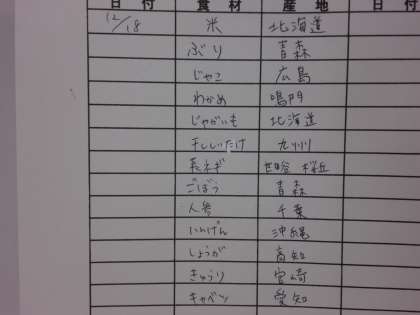 日 付 食 材 産 地 日 付
12/18 米 北海道
ぶり 青森
じゃこ 広島
わかめ 鳴門
じゃがいも 北海道
干ししいたけ 九州
長ネギ 世田谷 桜丘
ごぼう 青森
人参 千葉
いんげん 沖縄
しょうが 高知
きゅうり 宮崎
キャベツ 愛知